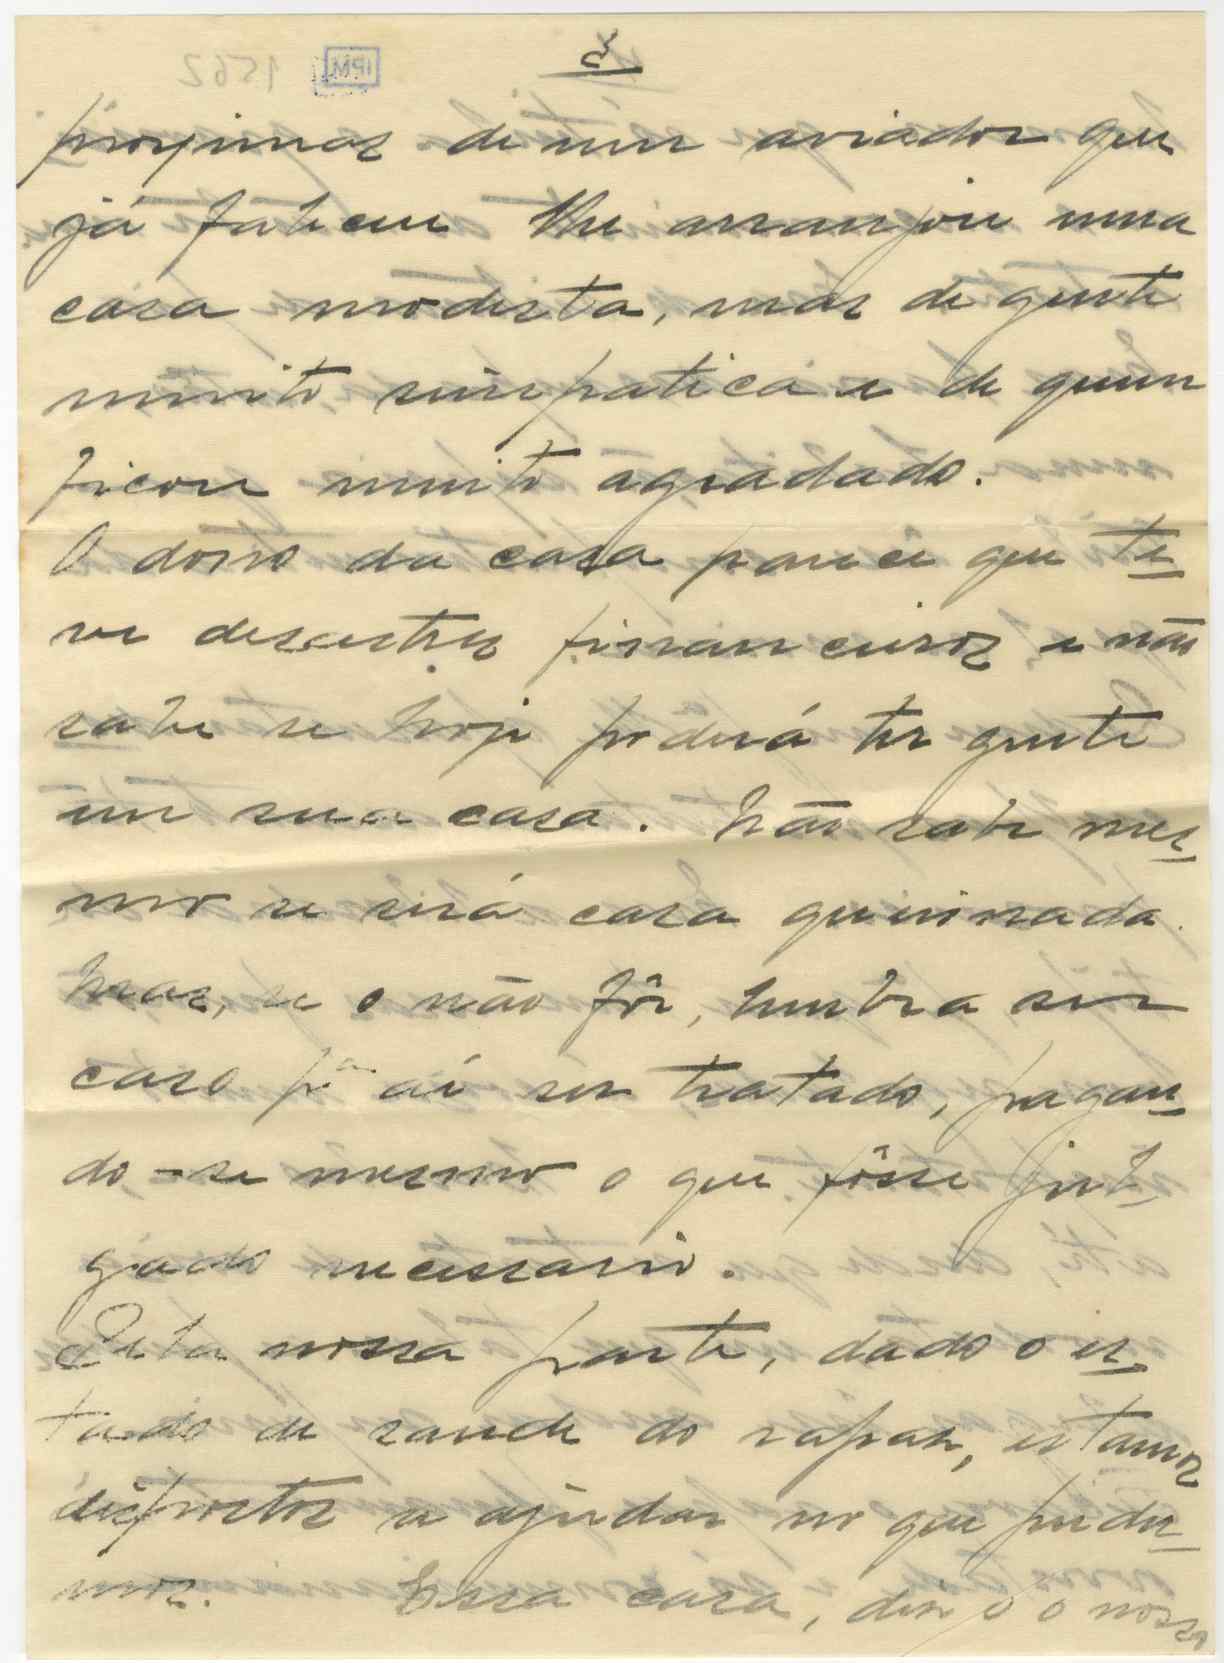 3
proximos de um aviador que
já faleceu lhe arranjou uma
casa modesta, mas de gente
muito simpatica e de quem
ficou muito agradado.
O dono da casa parece que te
ve desastres financeiros e não
sabe se hoje poderá ter gente
em sua casa. Não sabe mes
mo se será casa queimada.
Mas, se o não fôr, lembra ser
caso pª aí ser tratado, pagan
do-se mesmo o que fôsse jul
gado necessario.
Pela nossa parte, dado o es
tado de saude do rapaz, estamos
dispostos a ajudar no que puder
mos. Essa casa, diz o nosso
IPM
1562